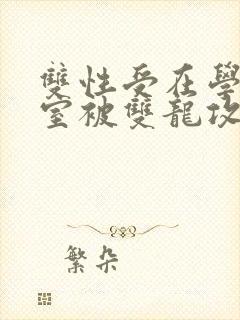 雙性受在學
室被雙龍攻
繁朵